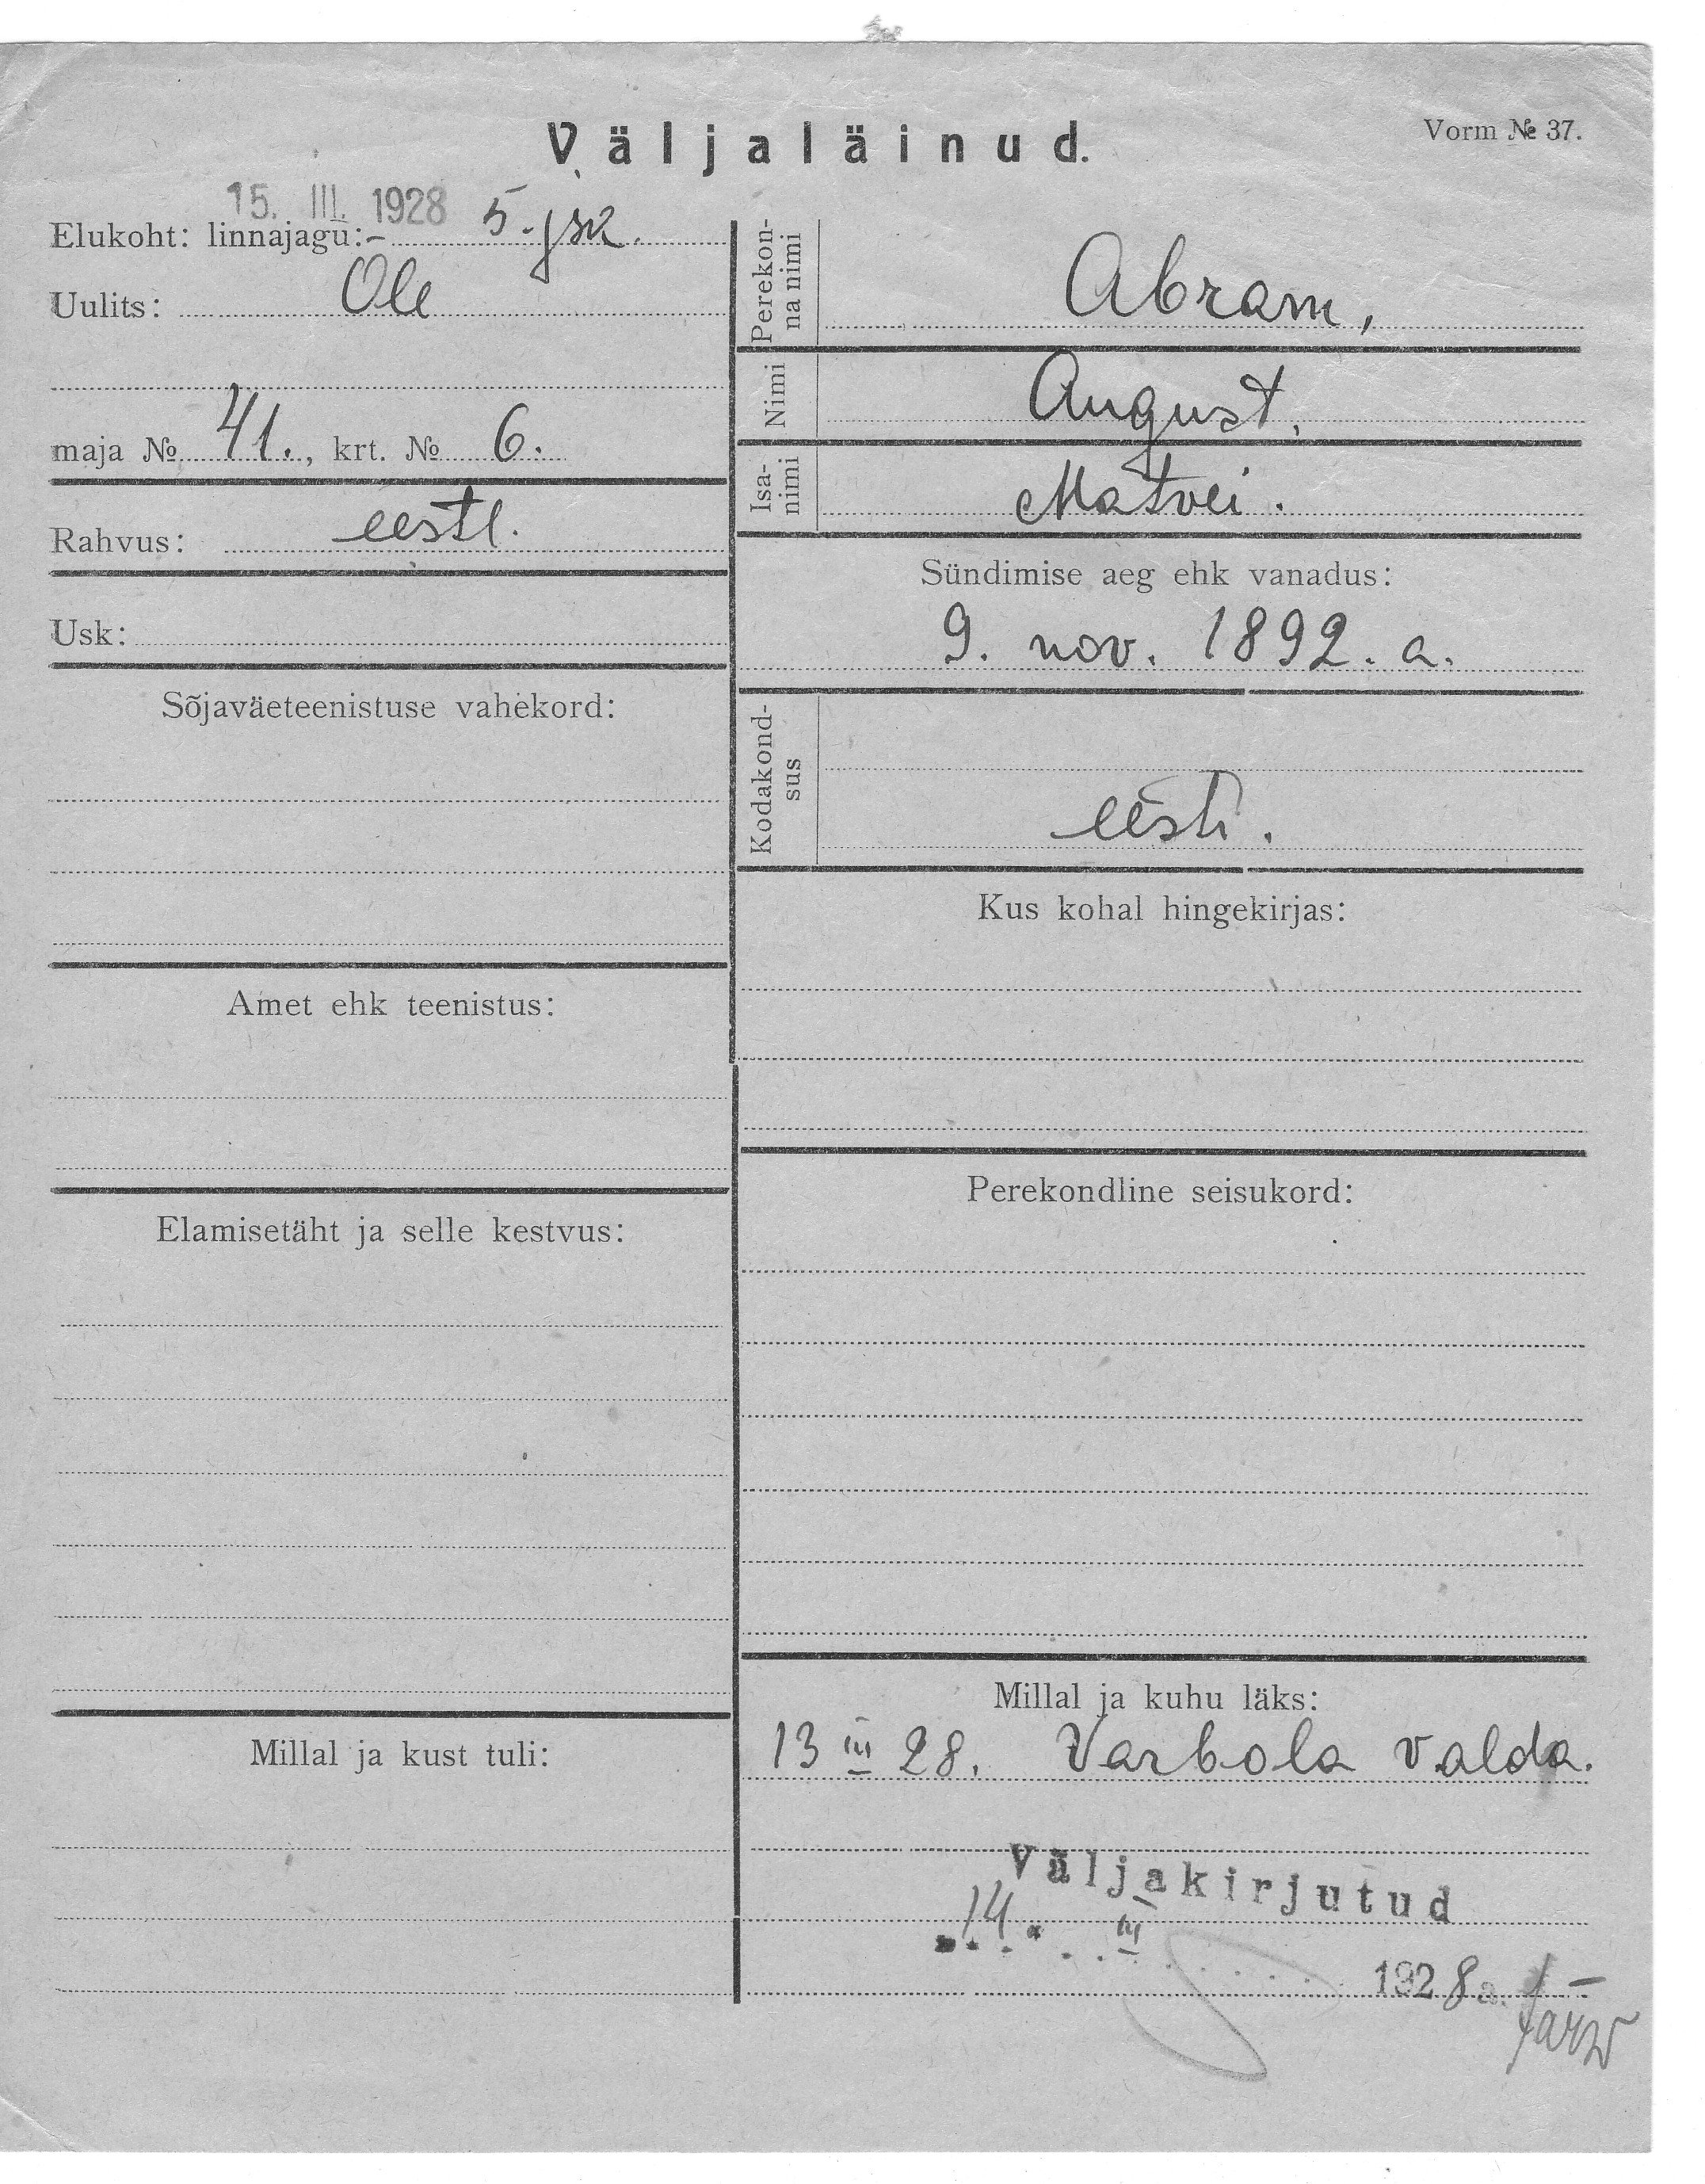 Väljaläinud.
Vorm № 37.
15. III. 1928
Elukoht: linnajagu:- 5. jsk.
Uulits: Ole
maja № 41., krt. № 6.
Rahvus: eestl.
Usk:
Sõjaväeteenistuse vahekord:
Amet ehk teenistus:
Elamisetäht ja selle kestvus:
Millal ja kust tuli:
Perekon-
na nimi
Abram,
Nimi
August,
Isa-
nimi
Matvei.
Sündimise aeg ehk vanadus:
9. nov. 1892. a.
Kodakond-
sus
eesti.
Kus kohal hingekirjas:
Perekondline seisukord:
Millal ja kuhu läks:
13 III 28. Varbola valda.
Väljakirjutud
14. III
1928 a.